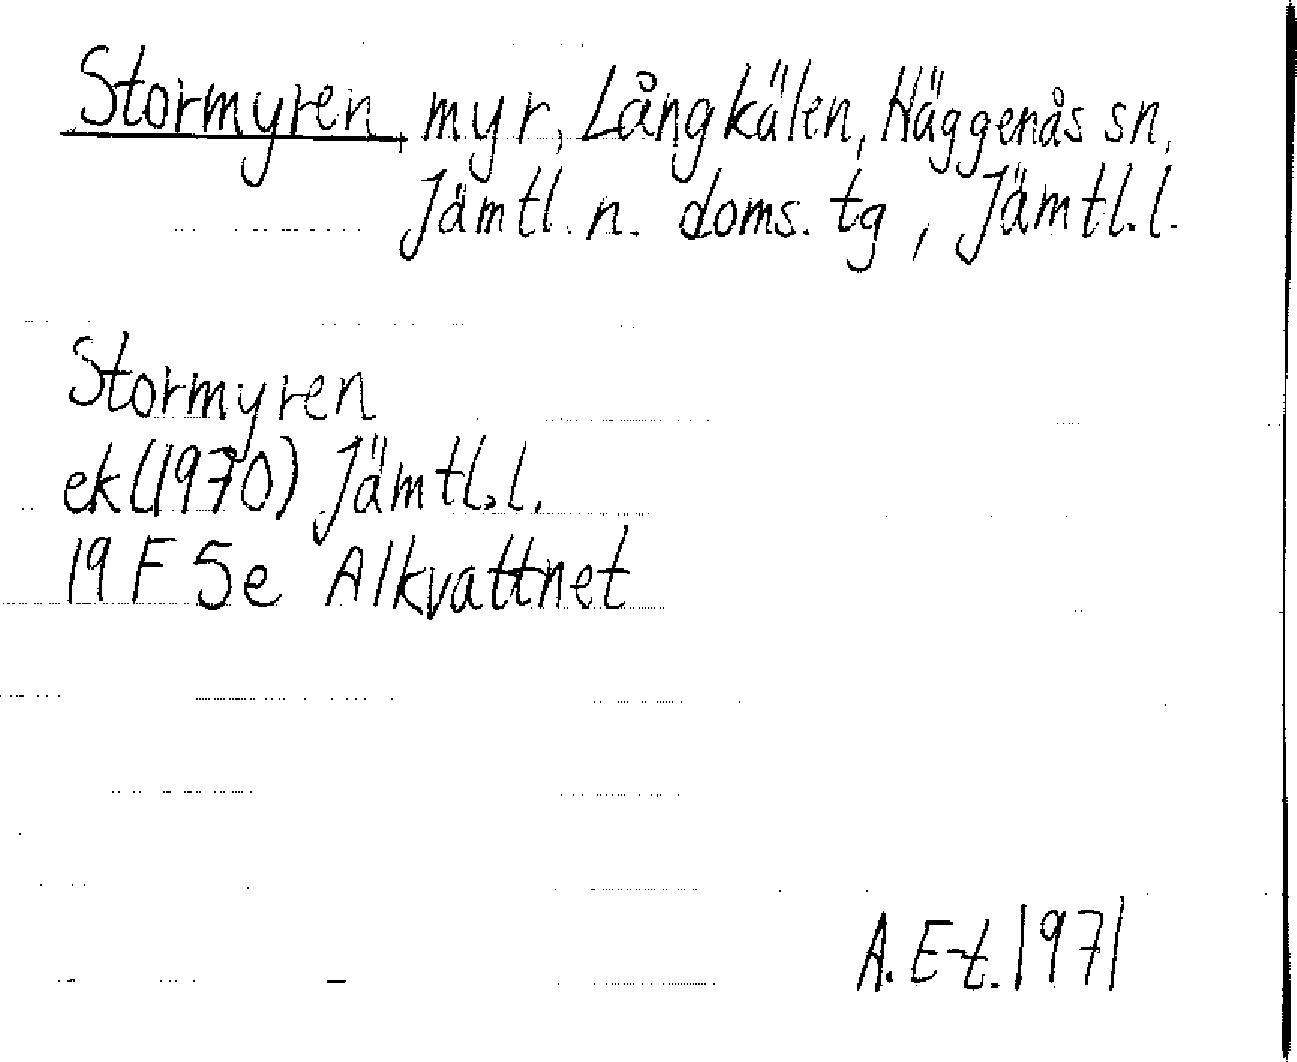 Stormyren, myr, Långkälen, Häggenås sn,
Jämtl. n. doms. tg, Jämtl. l.
Stormyren
ek (1970) Jämtl. l.
19 F 5e Alkvattnet
A. E-t. 1971